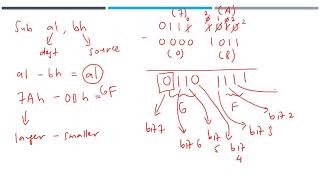 Sub al, bh
dest source
al - bh = al
7Ah - 0Bh = 6F
larger - smaller
(7) (A)
0 1 1 1 1 0 1 0
- 0 0 0 0 1 0 1 1
(0) (B)
0 1 1 0 1 1 1 1
6 F
bit 7 bit 6 bit 5 bit 4 bit 3 bit 2